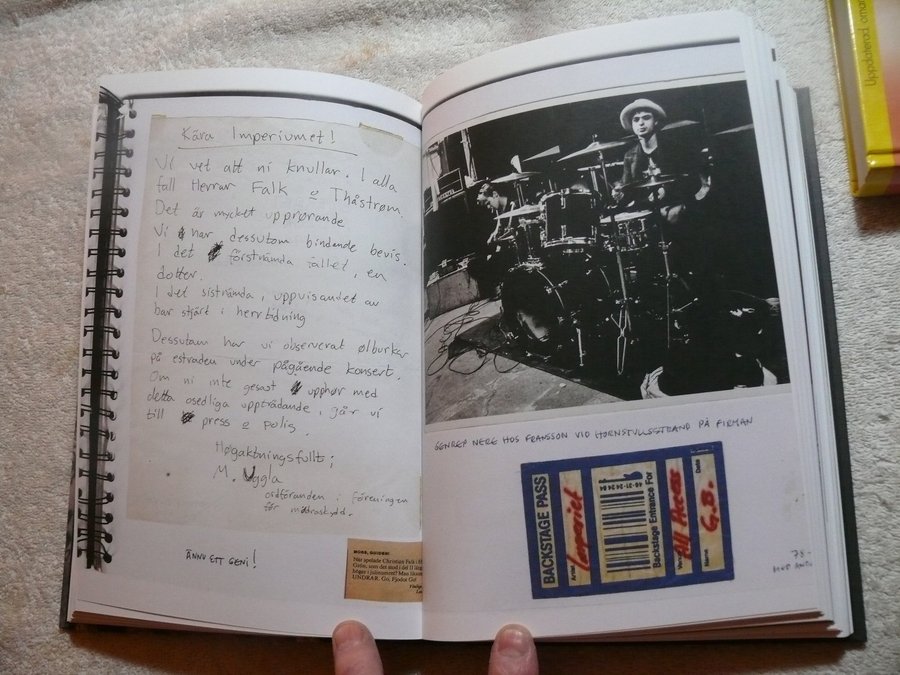 Kära Imperiumet!
Vi vet att ni knullar. I alla
fall Herrar Falk o Thåström.
Det är mycket upprørande
Vi har dessutom bindande bevis.
I det förstnämda fallet, en
dotter.
I det sistnämda, uppvisandet av
bar stjärt i herrtidning
Dessutom har vi observerat ølburkar
på estraden under pågående konsert.
Om ni inte genast upphør med
detta osedliga uppträdande, gør vi
till press o polis
Høgaktningsfullt;
M. Uggla
ordföranden i föreningen
för mødraskydd.
ÄNNU ETT GENI!
MORS, GUIDEN!
När spelade Christian Falk i
UNDRAR. Go, Fjodor Go!
GENREP NERE HOS FRANSSON VID HORNSTULLSSTRAND PÅ FIRMAN
BACKSTAGE PASS
Artist Imperiet
40-31-24 24 04
Backstage Entrance For
All Access
Name G.B.
Date
78-
Uppdaterad